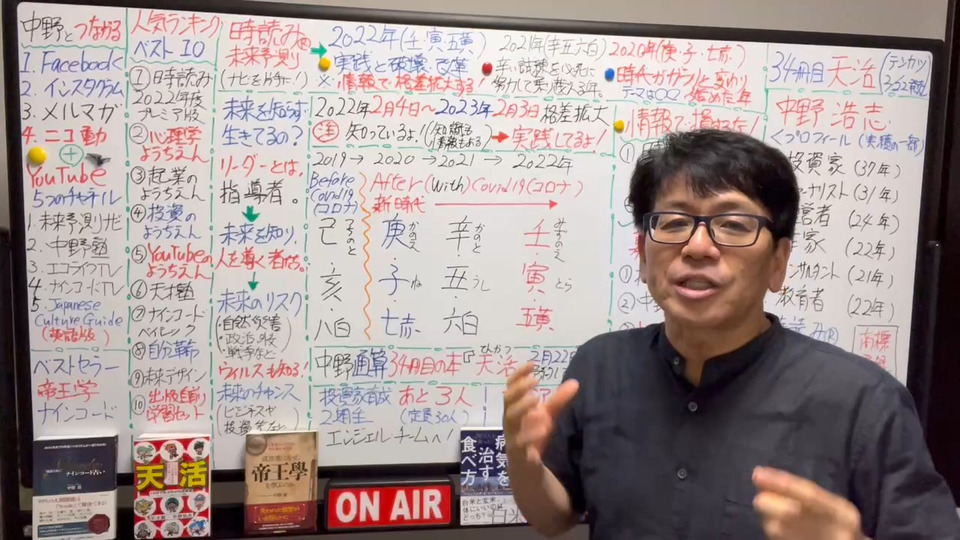 中野とつながる
1. Facebook
2. インスタグラム
3. メルマガ
4. ニコ動
+
YouTube
5つのチャネル
1. 未来予測ナビ
2. 中野塾
3. エコライフTV
4. ナインコードTV
5. Japanese
Culture Guide
(英語版)
ベストセラー
帝王学
ナインコード
人気ランキング
ベスト10
① 日時読み
2022年版
プレミアム版
② 心理学
ようちえん
③ 起業の
ようちえん
④ 投資の
ようちえん
⑤ YouTubeの
ようちえん
⑥ 天才塾
⑦ ナインコード
ベイシック
⑧ 自分革命
⑨ 未来デザイン
⑩ 出版自身
学習セット
時読み®
未来予測
未来を知らず
生きてるの?
リーダーとは、
指導者。
未来を知り、
人を導く者なり。
未来のリスク
・自然災害
・政治、外交
・戦争など
ウイルスも知る!
未来のチャンス
(ビジネスや
投資など)
2022年(壬・寅・五黄)
実践と破壊・改革
※情報で格差拡大する!
2021年(辛・丑・六白)
辛い試練を必死に
努力して乗り越える年。
2020年(庚・子・七赤)
時代がガラッと変わり
始めた年
2022年2月4日〜2023年2月3日 格差拡大
注 知っているよ!
→ 実践してるよ!
2019→2020→2021→2022年
Before
Covid19
(コロナ)
After(With)Covid19(コロナ)
新時代
己 つちのと
庚 かのえ
辛 かのと
壬 みずのえ
亥
子 ね
丑 うし
寅 とら
八白
七赤
六白
五黄
中野通算34冊目の本『天活
てんかつ
2月22
投資家育成
あと3人
2期生
(定員30人)
エンジェルチームへ!
34冊目 天活
(テンカツ)
中野 浩志
<プロフィール(実績の一部)
投資家(37年)
(31年)
(24年)
(22年)
(21年)
教育者(22年)
商標
ナインコード占い
天活
帝王學
ON AIR
病気を
治す
食べ方
白米と玄米、
体にいいのは
どっち?